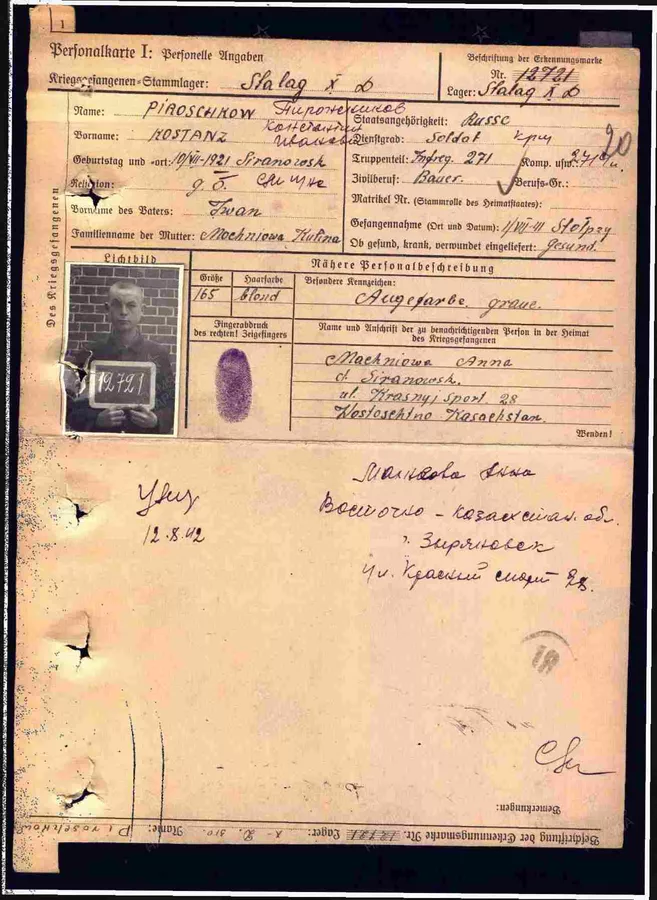 1
Personalkarte I: Personelle Angaben
Kriegsgefangenen-Stammlager: Stalag X D
Beschriftung der Erkennungsmarke
Nr. 12721
Lager: Stalag X D
Des Kriegsgefangenen
Name: PIROSCHKOW Пирожников
Vorname: KOSTANZ Константин Иванович
Geburtstag und -ort: 10/VII-1921 Siranowsk
Religion: g. o.
Vorname des Vaters: Iwan
Familienname der Mutter: Mochniowa Kulina
Staatsangehörigkeit: Russe
Dienstgrad: Soldat
20
Truppenteil: Inf.reg. 271 Komp. usw.:
Zivilberuf: Bauer Berufs-Gr.:
Matrikel Nr. (Stammrolle des Heimatstaates):
Gefangennahme (Ort und Datum): 1/VII-41 Stolpzy
Ob gesund, krank, verwundet eingeliefert: gesund.
Lichtbild
12721
Nähere Personalbeschreibung
Größe Haarfarbe
165 blond
Besondere Kennzeichen:
Augefarbe graue.
Fingerabdruck
des rechten! Zeigefingers
Name und Anschrift der zu benachrichtigenden Person in der Heimat
des Kriegsgefangenen
Machniowa Anna
d. Siranowsk.
ul. Krasnyj Sport 28
Wostoschtno Kasachstan.
Wenden!
Анна
Восточно-Казахстан. об.
г. Зыряновск
ул. Красный спорт 28.
12.8.42
Bemerkungen:
Beschriftung der Erkennungsmarke Nr. 12721 Lager: X. D. 310. Name: Piroschkow